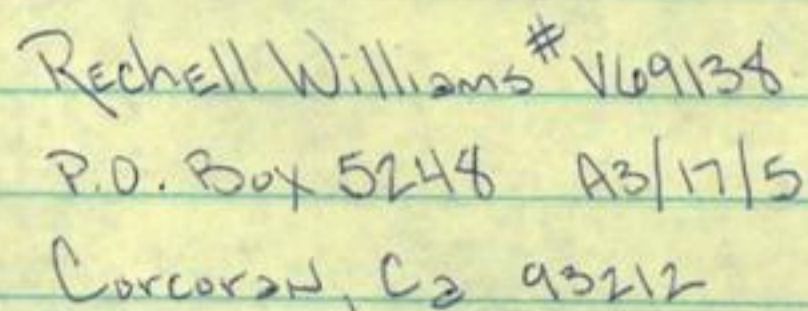 Rechell Williams # V69138
P.O. Box 5248 A3/17/5
Corcoran, Ca 93212